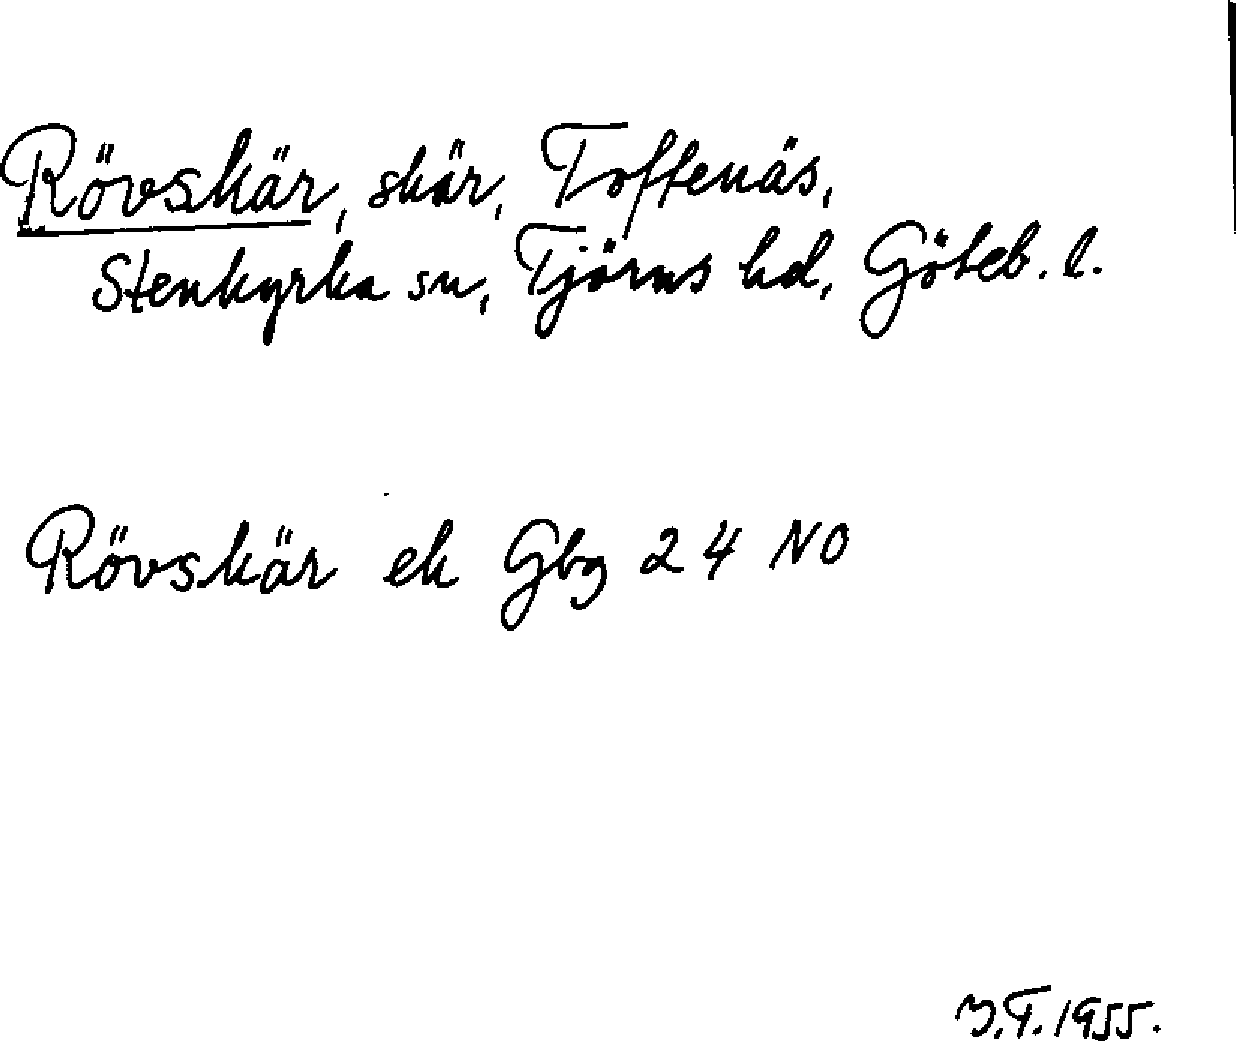 Rövskär, skär, Toftenäs,
Stenkyrka sn, Tjörns hd, Göteb. l.
Rövskär ek Gbg 24 NO
1955.